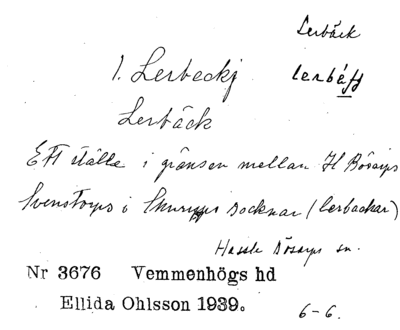 Lerbäck
1. Lerbeckj lerbáff
Lerbäck
Ett ställe i gränsen mellan Hl Bösarps
Svenstorps i Skurups socknar (lerbackar)
Hassle Bösarps sn.
Nr 3676 Vemmenhögs hd
Ellida Ohlsson 1939.
6-6.